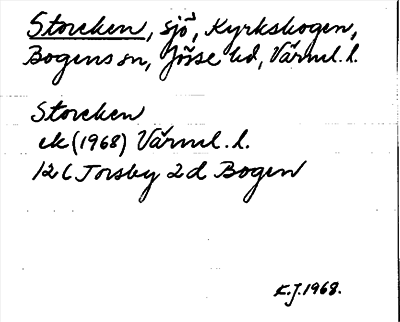 Storcken, sjö, Kyrkskogen,
Bogens sn, Jösse hd, Värml. l.
Storcken
ek (1968) Värml. l.
12 C Torsby 2 d Bogen
K.J. 1968.